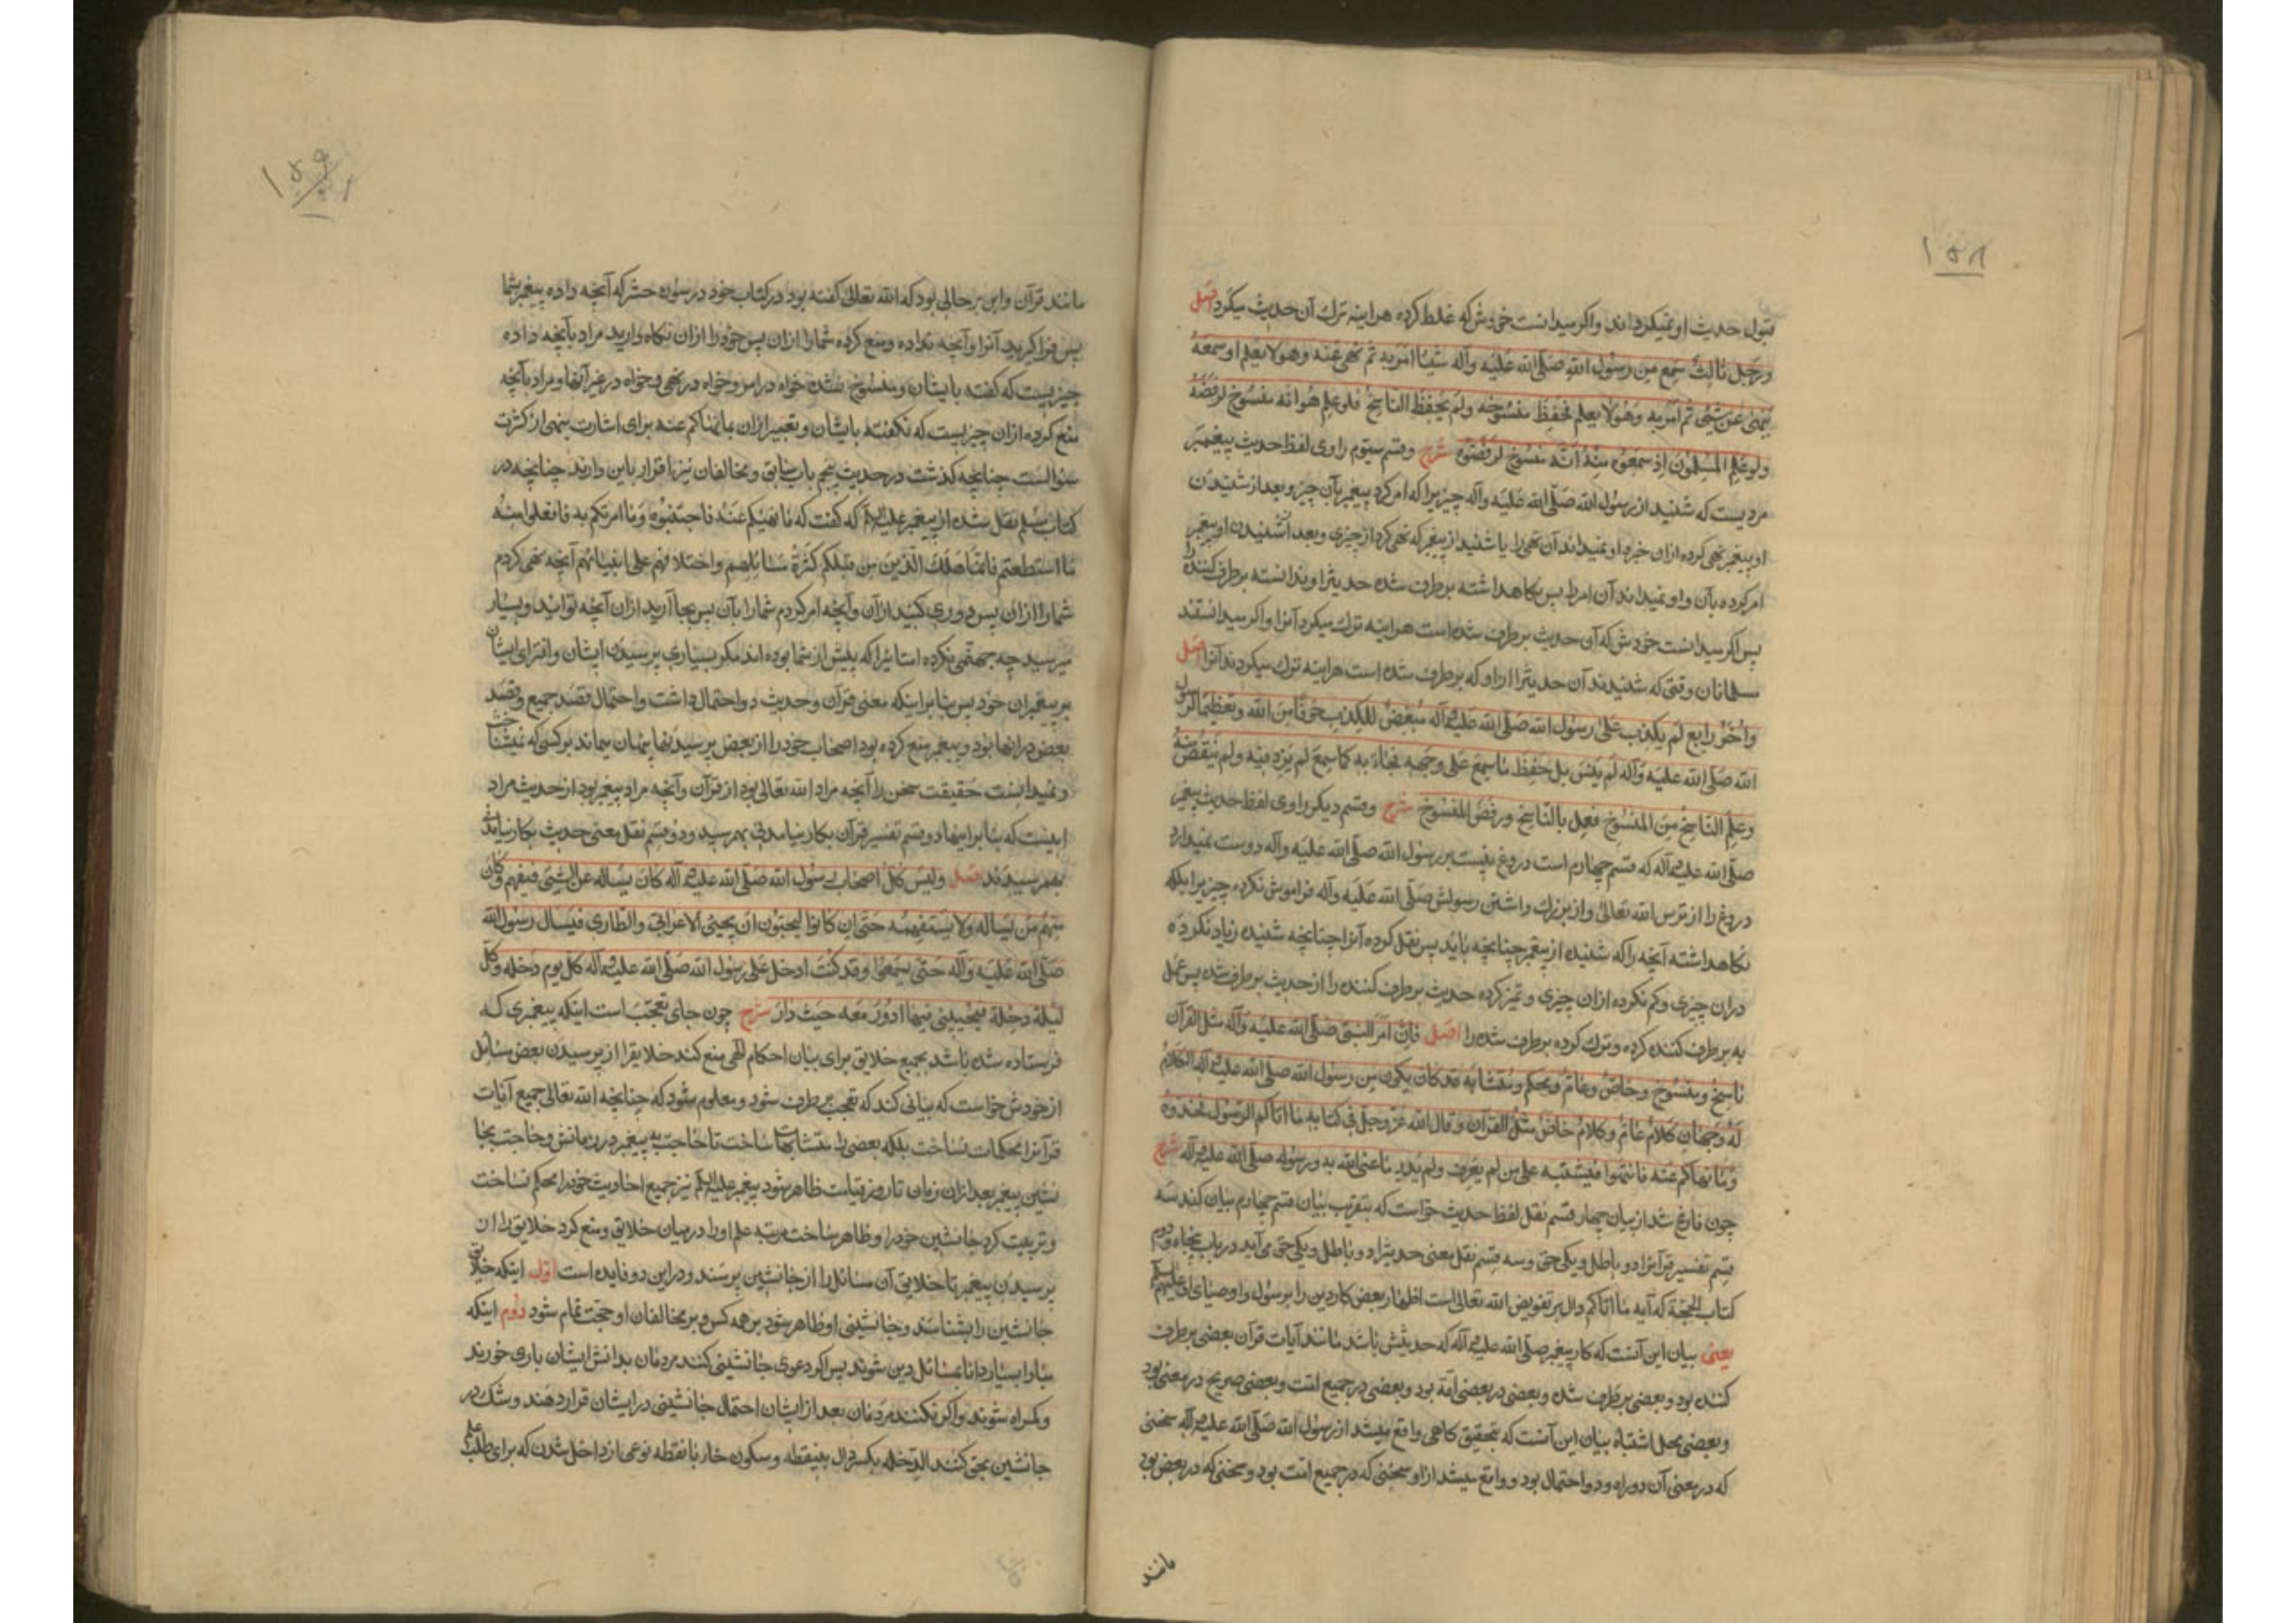 ۱۵۸
قبول حدیث او نمیکرداند واکر میدانست خودش که غلط کرده هراینه ترك آن حدیث میکرد اصل
ورجل ثالث سمع من رسول الله صلّی الله علیه وآله شیئا امر به ثم نهی عنه وهو لا یعلم او سمعه
ینهی عن شیئ ثم امر به وهو لا یعلم فحفظ منسوخه ولم یحفظ الناسخ فلو علم هو انه منسوخ لرفضه
ولو علم المسلمون اذ سمعوه منه انه منسوخ لرفضوه شرح وقسم سیوم راوی لفظ حدیث پیغمبر
مردیست که شنید از رسول الله صلّی الله علیه وآله چیزیرا که امر کرد پیغمبر بآن چیز و بعد از شنیدن
او پیغمبر نهی کرده ازان خبر او نمیداند آن نهی را یا شنید از پیغمبر که نهی کرد از چیزی وبعد از شنیدن او پیغمبر
امر کرده بآن واو نمیداند آن امر را پس نکاهداشته برطرف شده حدیثرا وندانسته برطرف کننده را
پس اکر میدانست خودش که آن حدیث برطرف شده است هراینه ترك میکرد آنرا واکر میدانستند
مسلمانان وقتی که شنیدند آن حدیثرا ازاو که برطرف شده است هراینه ترك میکردند آنرا اصل
وآخر رابع لم یکذب علی رسول الله صلّی الله علیه وآله مبغض للکذب خوفا من الله وتعظیما لرسول
الله صلّی الله علیه وآله لم ینس بل حفظ ما سمع علی وجهه فجاء به کما سمع لم یزد فیه ولم ینقص منه
وعلم الناسخ من المنسوخ فعمل بالناسخ ورفض المنسوخ شرح وقسم دیکر راوی لفظ حدیث پیغمبر
صلّی الله علیه وآله که قسم چهارم است دروغ نبست بر رسول الله صلّی الله علیه وآله دوست نمیدارد
دروغ را از ترس الله تعالی واز بزرك داشتن رسولش صلّی الله علیه وآله فراموش نکرده چیزیرا بلکه
نکاهداشته آنچه را که شنیده از پیغمبر چنانچه باید پس نقل کرده آنرا چنانچه شنیده زیاد نکرده
دران چیزی وکم نکرده ازان چیزی وتمیز کرده حدیث برطرف کننده را از حدیث برطرف شده پس عمل
به برطرف کننده کرده وترك کرده برطرف شده را اصل فان امر النبی صلّی الله علیه وآله مثل القرآن
ناسخ ومنسوخ وخاص وعام ومحکم ومتشابه قد کان یکون من رسول الله صلّی الله علیه وآله الکلام
له وجهان کلام عام وکلام خاص مثل القرآن وقال الله عز وجل فی کتابه ما اتاکم الرسول فخذوه
وما نهاکم عنه فانتهوا فیشتبه علی من لم یعرف ولم یدر ما عنی الله به ورسوله صلّی الله علیه وآله شرح
چون فارغ شد از بیان چهار قسم نقل لفظ حدیث خواست که بتقریب بیان قسم چهارم بیان کند سه
قسم تفسیر قرآنرا دو باطل ویکی حق وسه قسم نقل معنی حدیثرا دو باطل ویکی حق می آید در باب پنجاه ودوم
کتاب الحجة که آیه ما اتاکم دال بر تفویض الله تعالی است اظهار بعض کار دین را برسول واوصیای او علیهم السلام
یعنی بیان این آنست که کار پیغمبر صلّی الله علیه وآله که حدیثش باشد مانند آیات قرآن بعضی برطرف
کننده بود وبعضی برطرف شده وبعضی در بعضی امة بود وبعضی در جمیع امت وبعضی صریح در معنی بود
وبعضی محل اشتباه بیان این آنست که بتحقیق کاهی واقع میشد از رسول الله صلّی الله علیه وآله سخنی
که در معنی آن دوراه ودو احتمال بود وواقع میشد ازاو سخنی که در جمیع امت بود وسخنی که در بعض بود
مانند
۱۵۹
مانند قرآن واین بر حالی بود که الله تعالی کفته بود در کتاب خود در سوره حشر که آنچه داده پیغمبر شما
پس فرا کیرید آنرا وآنچه نداده ومنع کرده شما را ازان پس خود را ازان نکاه دارید مراد بآنچه داده
چیزیست که کفته بایشان ومنسوخ نشده خواه در امر وخواه در نهی وخواه در غیر آنها ومراد بآنچه
منع کرده ازان چیزیست که نکفته بایشان وتعبیر ازان بما نهاکم عنه برای اشارت بنهی از کثرت
سؤالست چنانچه کذشت در حدیث پنجم باب سابق ومخالفان نیز اقرار باین دارند چنانچه در
کتاب مسلم نقل شده از پیغمبر علیه السلام که کفت که ما نهیتکم عنه فاجتنبوه وما امرتکم به فافعلوا منه
ما استطعتم فانما اهلك الذین من قبلکم کثرة مسائلهم واختلافهم علی انبیائهم آنچه نهی کردم
شما را ازان پس دوری کنید ازان وآنچه امر کردم شما را بآن پس بجا آرید ازان آنچه توانید وبسیار
مپرسید چه جهنمی نکرده امتانیرا که پیش از شما بوده اند مکر بسیاری پرسیدن ایشان وافترای ایشان
بر پیغمبران خود پس بنابر اینکه معنی قرآن وحدیث دو احتمال داشت واحتمال قصد جمیع وقصد
بعض درانها بود وپیغمبر منع کرده بود اصحاب خود را از بعض پرسیدنها پنهان میماند بر کسی که نمیشناخت
ونمیدانست حقیقت سخن را آنچه مراد الله تعالی بود از قرآن وآنچه مراد پیغمبر بود از حدیث مراد
اینست که بنابر اینها دو قسم تفسیر قرآن بکار نیامدنی بهم رسید ودو قسم نقل معنی حدیث بکار نیامدنی
بهم رسیدند اصل ولیس کل اصحاب رسول الله صلّی الله علیه وآله کان یساله عن الشیئ فیفهم وکان
منهم من یساله ولا یستفهمه حتی ان کانوا لیحبون ان یجیئ الاعرابی والطاری فیسال رسول الله
صلّی الله علیه وآله حتی یسمعوا وقد کنت ادخل علی رسول الله صلّی الله علیه وآله کل یوم دخلة وکل
لیلة دخلة فیخلینی فیها ادور معه حیث دار شرح چون جای تعجب است اینکه پیغمبری که
فرستاده شده باشد بجمیع خلایق برای بیان احکام الهی منع کند خلایقرا از پرسیدن بعض مسائل
ازخودش خواست که بیانی کند که تعجب برطرف شود ومعلوم شود که چنانچه الله تعالی جمیع آیات
قرآنرا محکمات نساخت بلکه بعضی را متشابهات ساخت تا حاجت به پیغمبر در زمانش وحاجت بجا
نشین پیغمبر بعد ازان زمان تا روز قیامت ظاهر شود پیغمبر علیه السلام نیز جمیع احادیث خود را محکم نساخت
وتربیت کرد جانشین خود را وظاهر ساخت مرتبه علم او را درمیان خلایق ومنع کرد خلایق را از
پرسیدن پیغمبر تا خلایق آن مسائل را از جانشین پرسند ودراین دو فایده است اول اینکه خلایق
جانشین را بشناسند وجانشینی او ظاهر شود بر همه کس وبر مخالفان او حجت تمام شود دوم اینکه
مبادا بسیار دانا بمسائل دین شوند پس اکر دعوی جانشینی کنند مردمان بدانش ایشان بازی خورند
وکمراه شوند واکر نکنند مردمان بعد از ایشان احتمال جانشینی در ایشان قرار دهند وشك در
جانشین بحق کنند الدخله بکسر دال بینقطه وسکون خاء با نقطه نوعی از داخل شدن که برای طلب علم